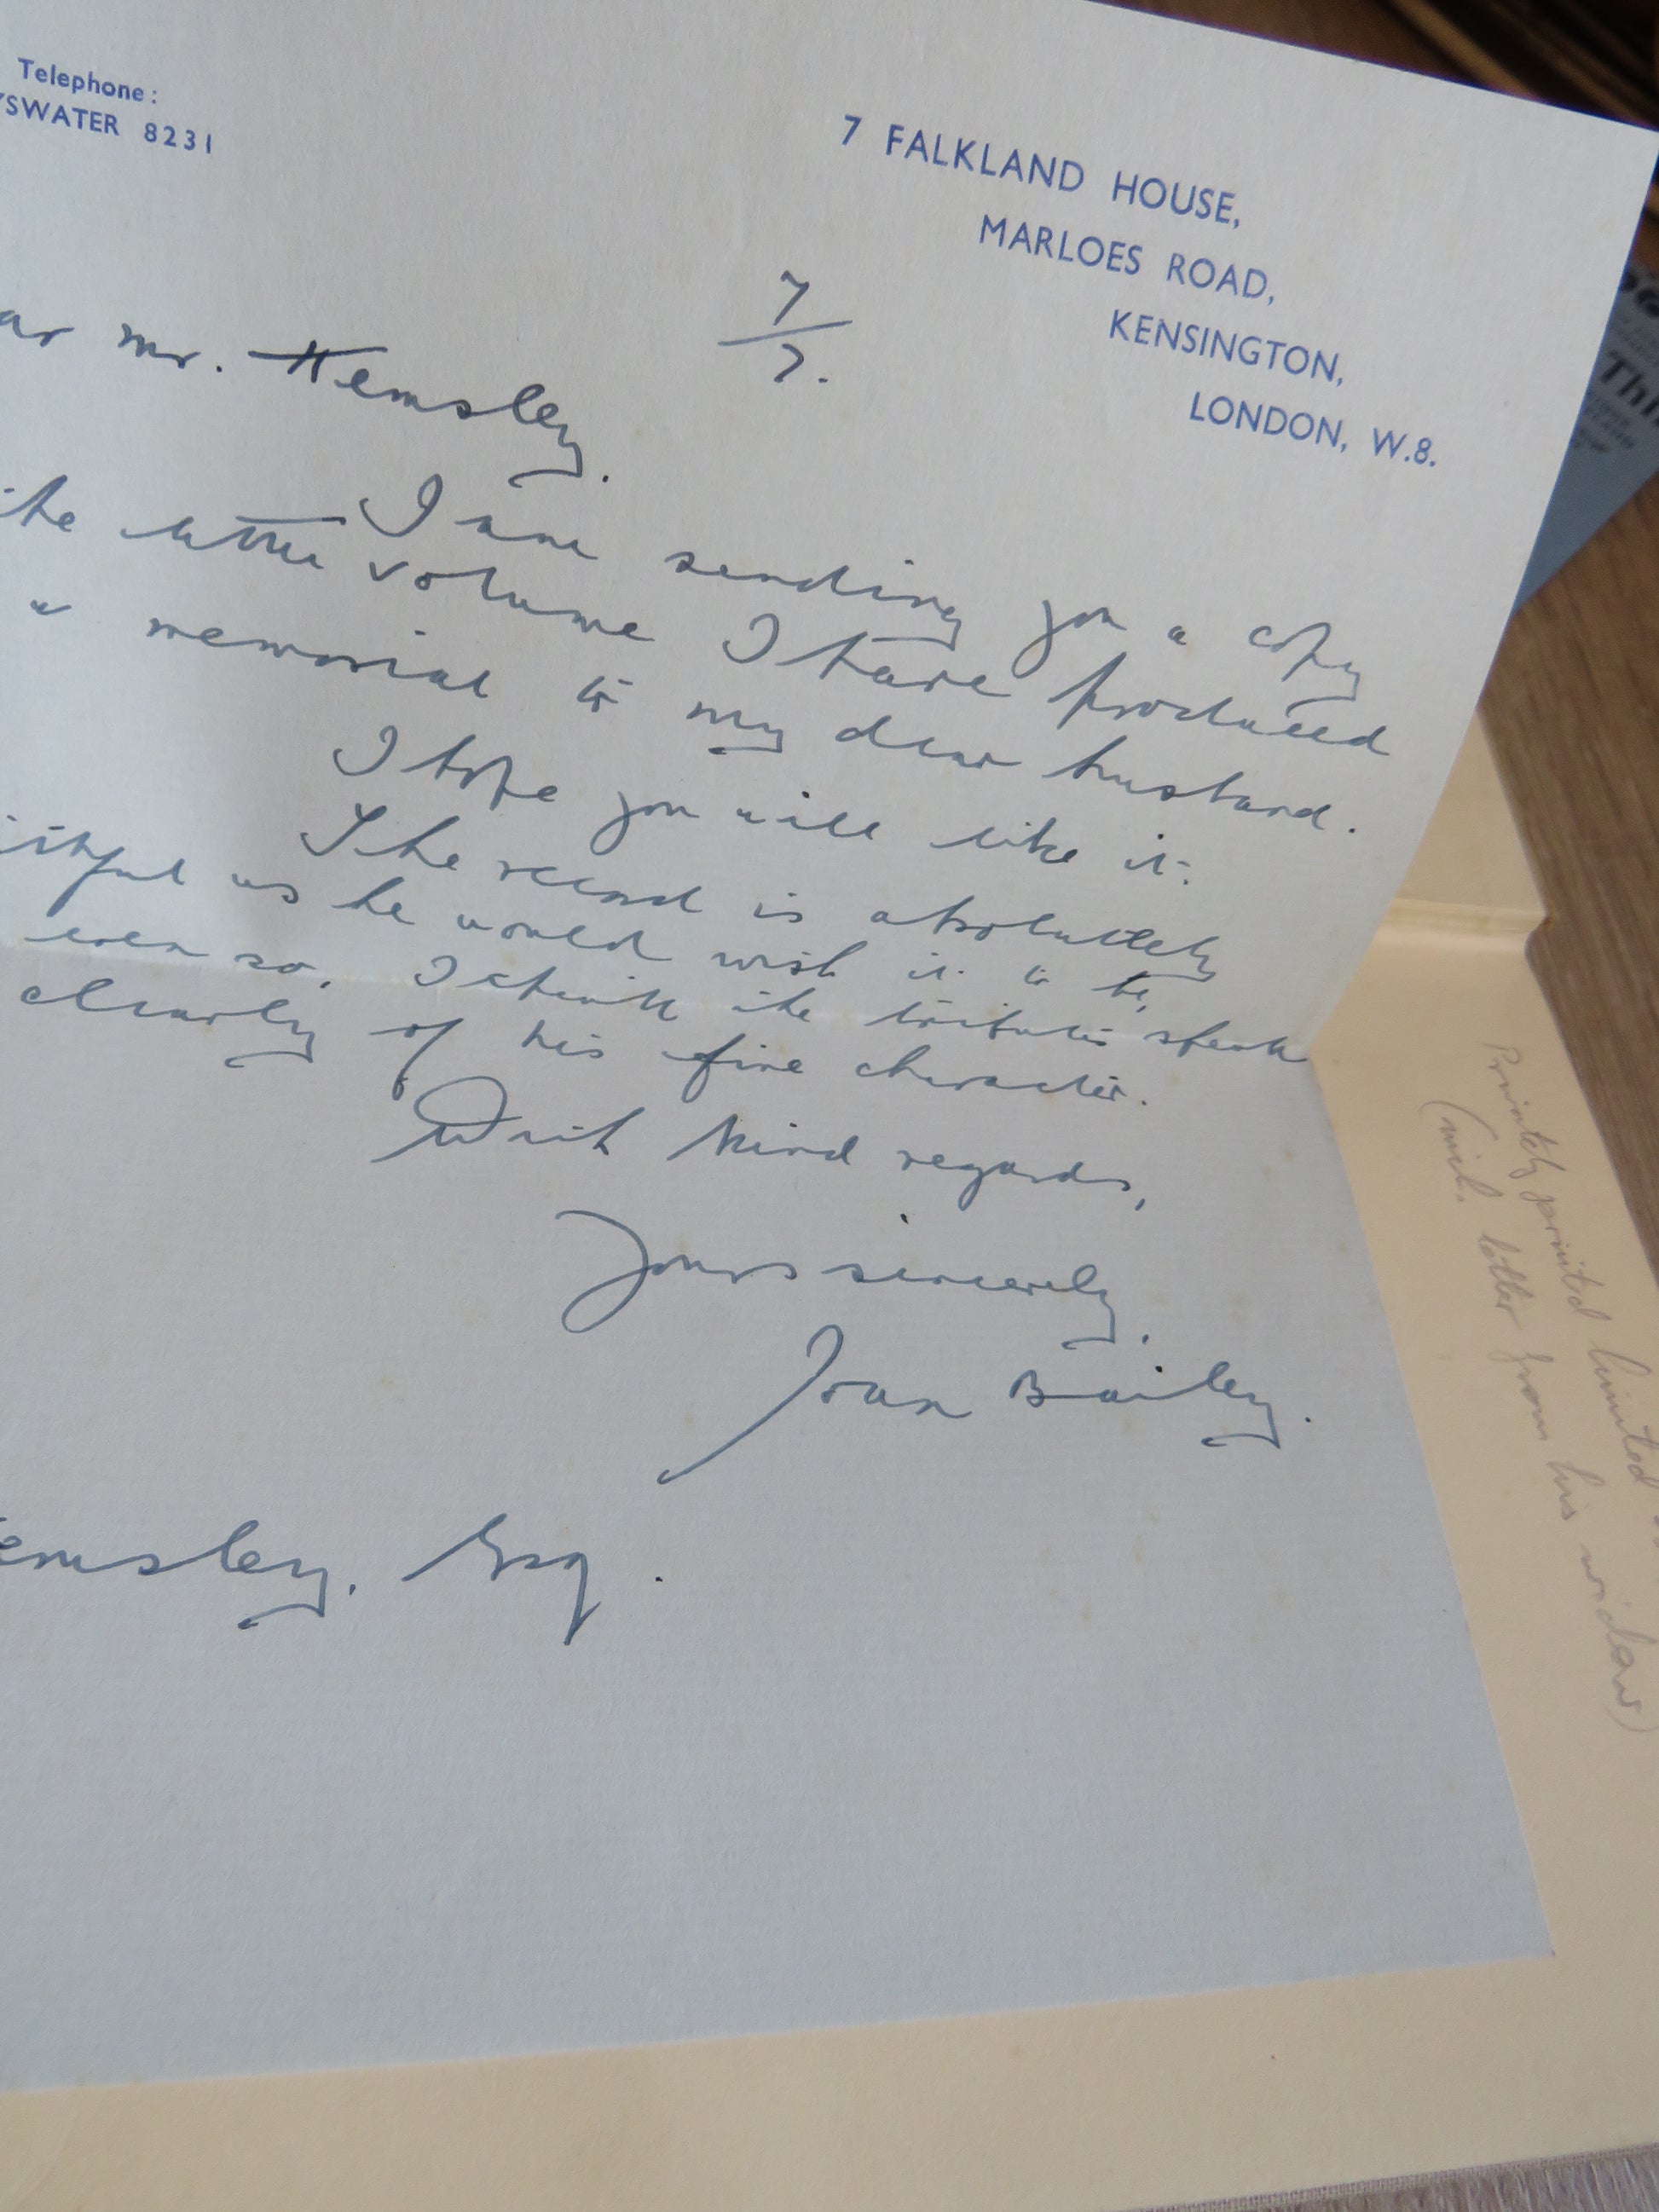 Telephone:
YSWATER 8231
7 FALKLAND HOUSE,
MARLOES ROAD,
KENSINGTON,
LONDON, W.8.
7/7.
ar Mr. Hemsley.
I am sending you a copy
the little volume I have produced
a memorial to my dear husband.
I hope you will like it.
The record is absolutely
as he would wish it to be,
even so, I think the tributes speak
clearly of his fine character.
With kind regards,
Yours sincerely,
Joan Bailey.
emsley. Esq.
Privately printed limited
(incl. letter from his widow)
Thi